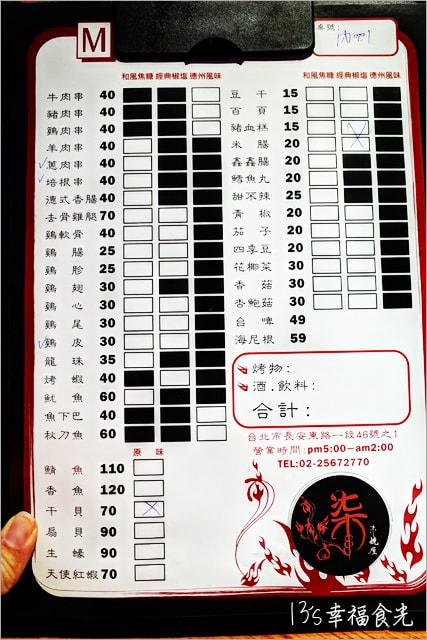 M
桌號:
和風焦糖 經典椒塩 德州風味
牛肉串 40
豬肉串 40
鷄肉串 40
羊肉串 40
蔥肉串 40
培根串 40
德式香腸 40
去骨雞腿 70
鷄軟骨 40
鷄腸 25
鷄胗 25
鷄翅 30
鷄心 30
鷄尾 30
鷄皮 30
龍珠 35
烤蝦 40
魷魚 60
魚下巴 40
秋刀魚 60
原味
鯖魚 110
香魚 120
干貝 70
扇貝 90
生蠔 90
天使紅蝦 70
和風焦糖 經典椒塩 德州風味
豆干 15
百頁 15
豬血糕 15
米腸 20
鑫鑫腸 20
鱈魚丸 20
甜不辣 25
青椒 20
茄子 20
四季豆 20
花椰菜 30
香菇 30
杏鮑菇 30
台啤 49
海尼根 59
烤物:
酒.飲料:
合計:
台北市長安東路一段46號之1
營業時間:pm5:00~am2:00
TEL:02-25672770
柒
串燒屋
13's幸福食光